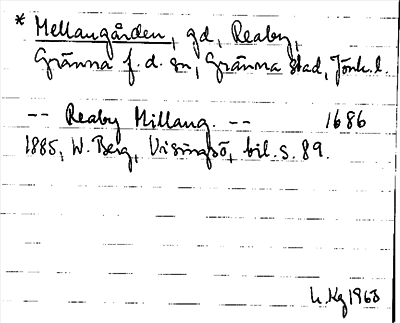 * Mellangården, gd, Reaby,
Gränna f. d. sn, Gränna stad, Jönk. l.
-- Reaby Millang. -- 1686
1885, W. Berg, Visingsö, bil. s. 89.
h. Kg 1963